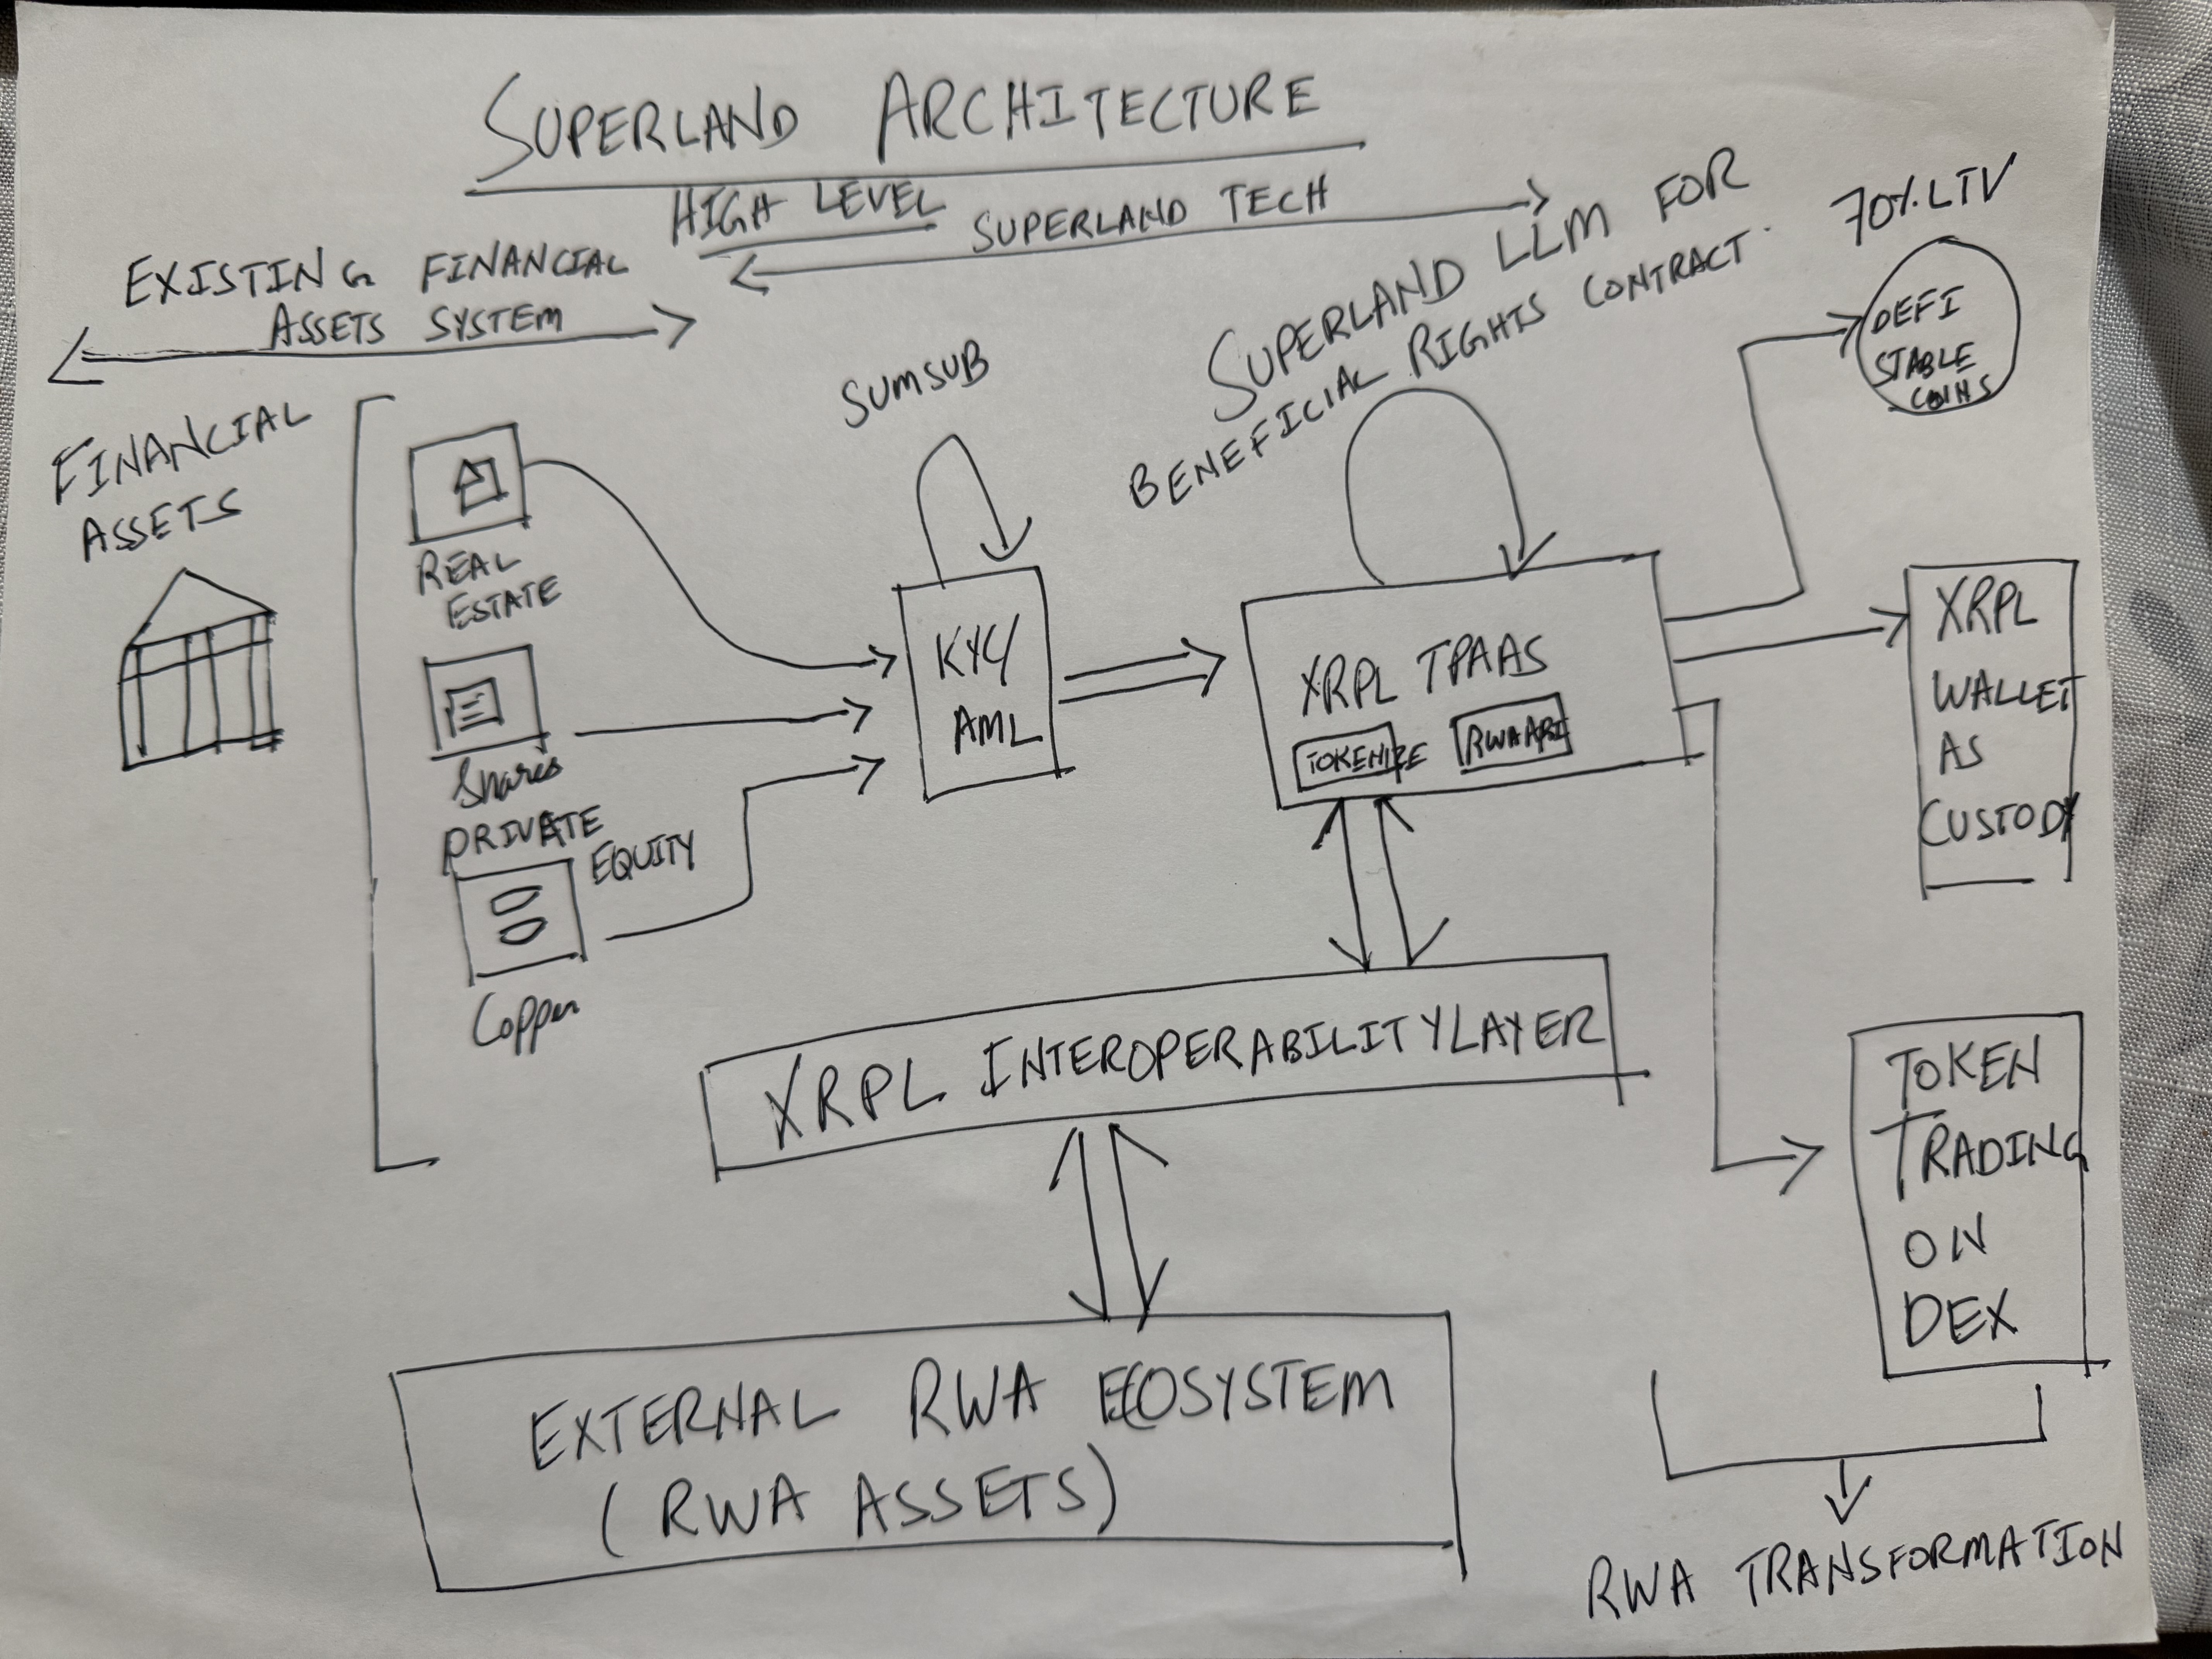 SUPERLAND ARCHITECTURE
HIGH LEVEL
SUPERLAND TECH
EXISTING FINANCIAL
ASSETS SYSTEM
SUPERLAND LLM FOR
BENEFICIAL RIGHTS CONTRACT.
70% LTV
DEFI
STABLE
COINS
FINANCIAL
ASSETS
REAL
ESTATE
Shares
PRIVATE
EQUITY
Copper
SUMSUB
KYC/
AML
XRPL TPAAS
TOKENIZE
RWA API
XRPL
WALLET
AS
CUSTODY
XRPL INTEROPERABILITY LAYER
TOKEN
TRADING
ON
DEX
EXTERNAL RWA ECOSYSTEM
(RWA ASSETS)
RWA TRANSFORMATION